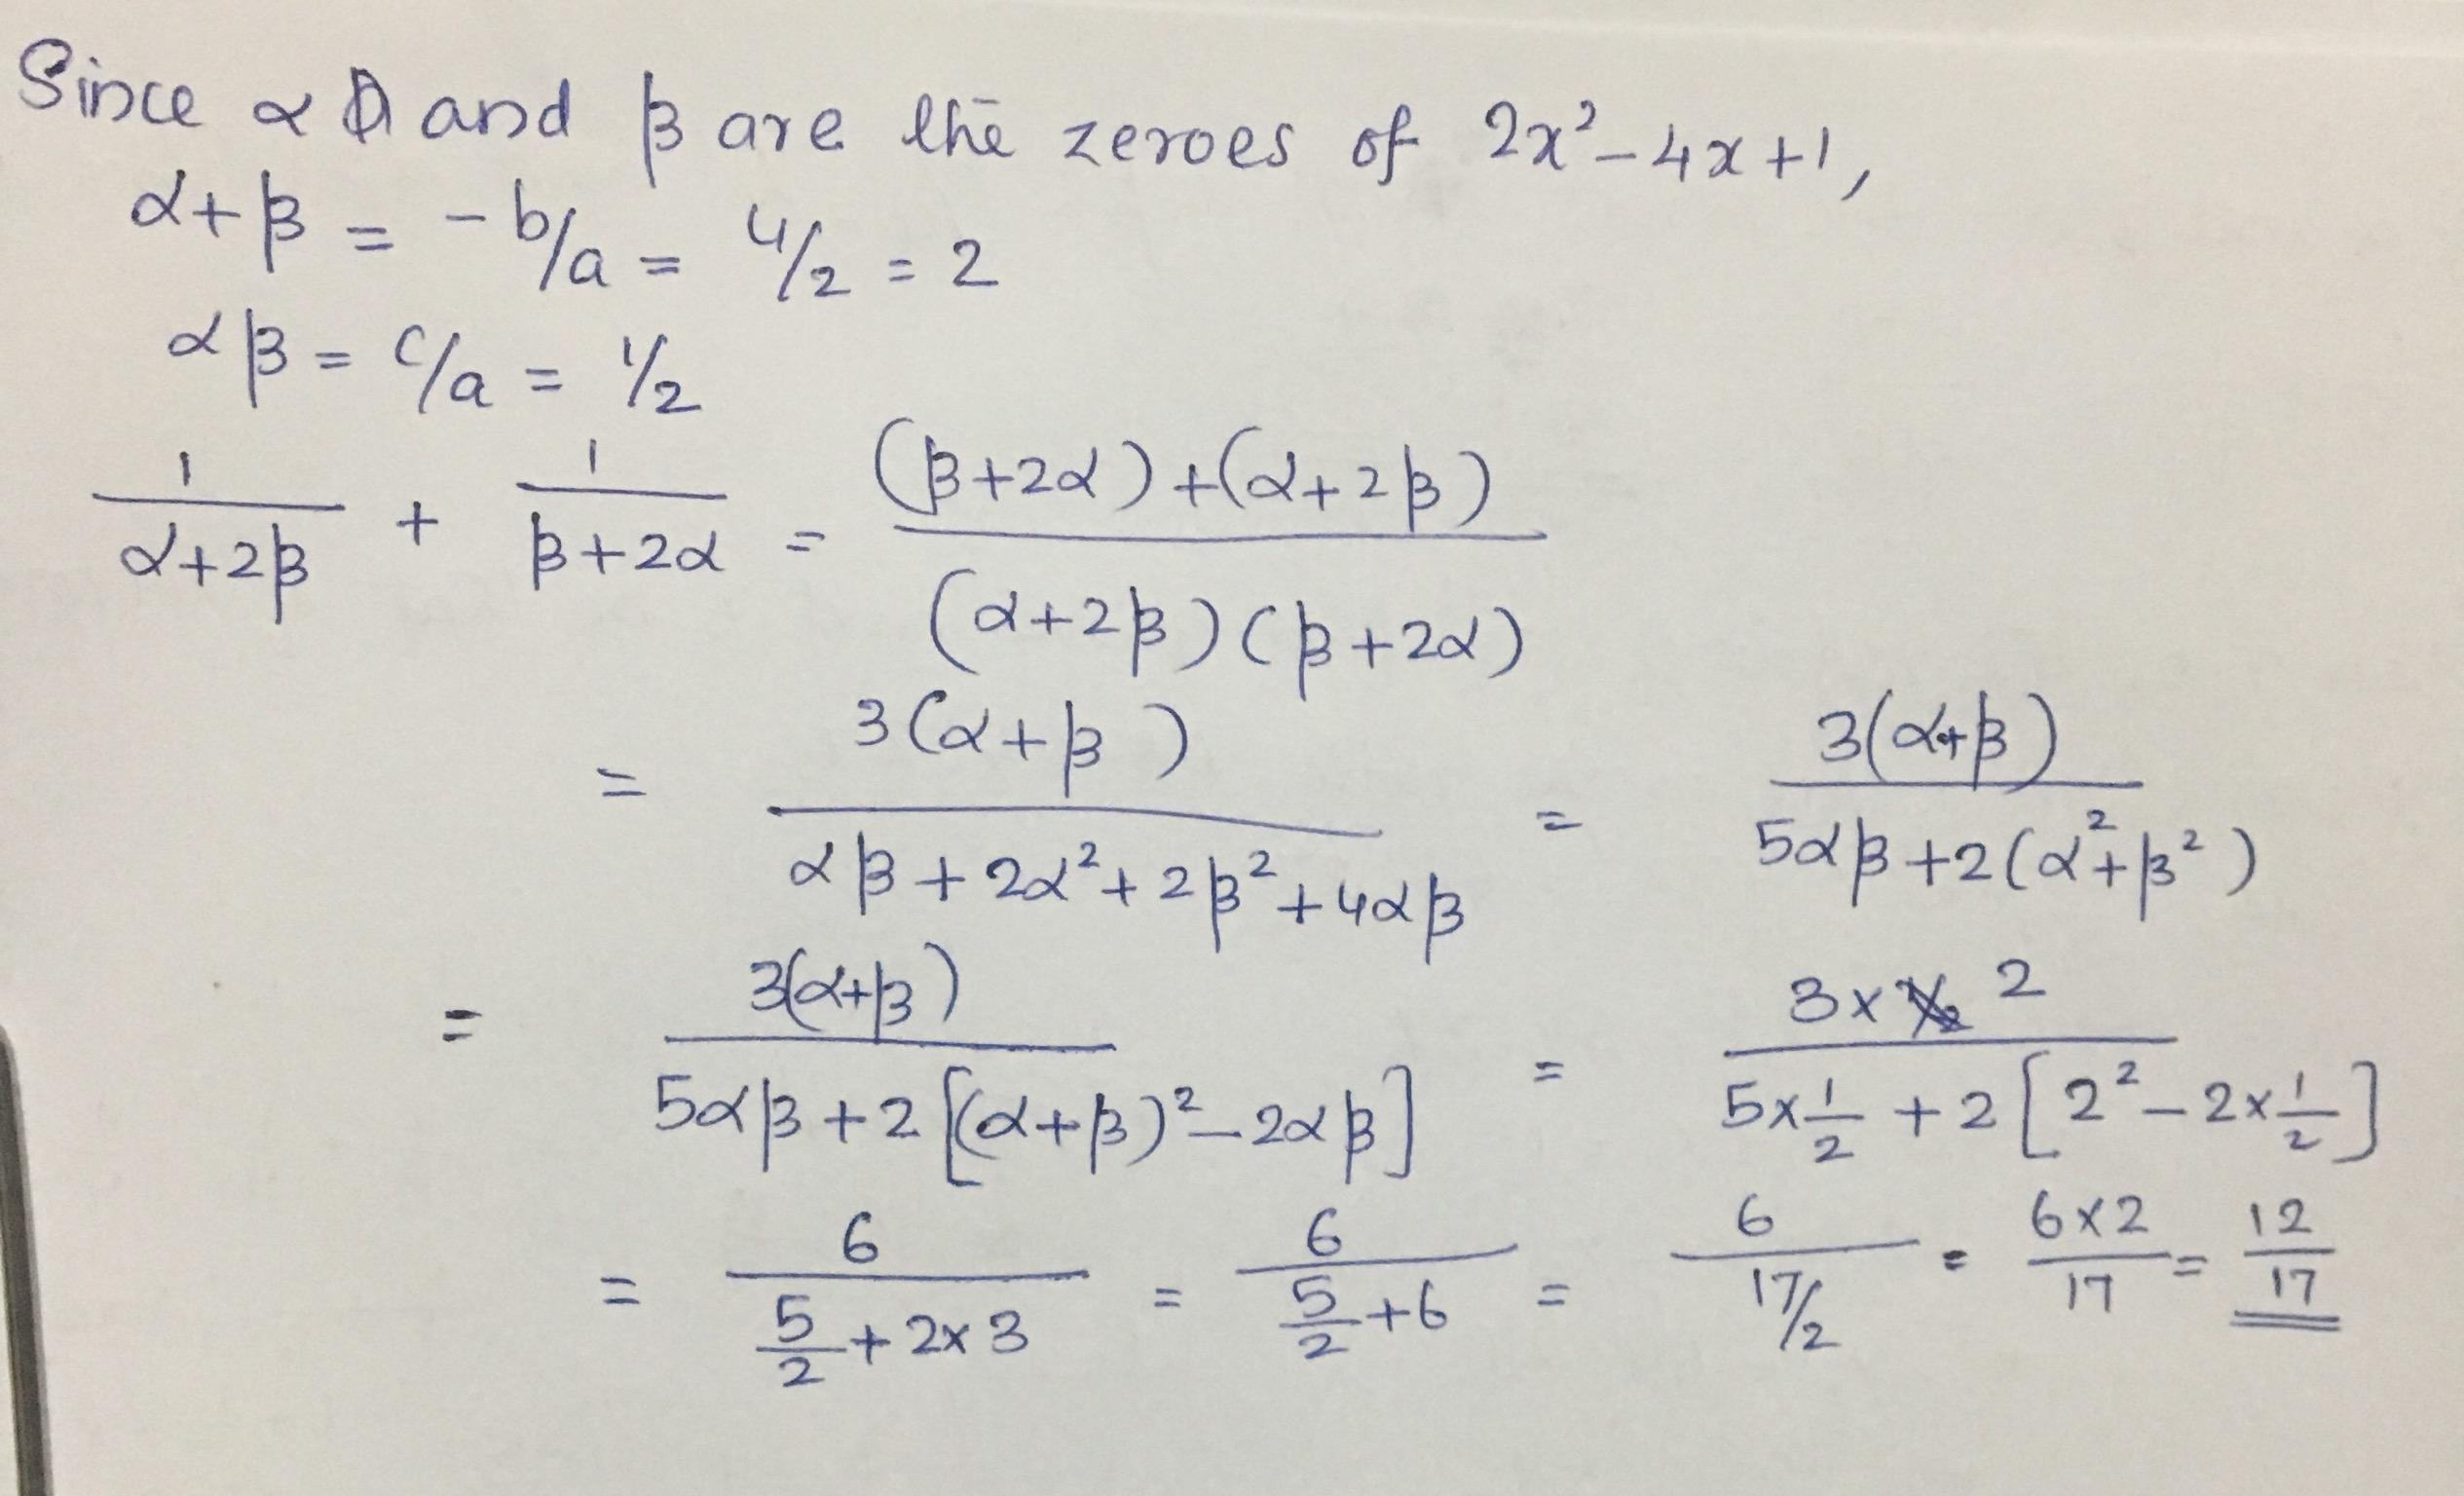 Since α and β are the zeroes of 2x²-4x+1,
α+β = -b/a = 4/2 = 2
αβ = c/a = 1/2
1/(α+2β) + 1/(β+2α) = ((β+2α)+(α+2β))/((α+2β)(β+2α))
= 3(α+β)/(αβ+2α²+2β²+4αβ) = 3(α+β)/(5αβ+2(α²+β²))
= 3(α+β)/(5αβ+2[(α+β)²-2αβ]) = 3×2/(5×1/2+2[2²-2×1/2])
= 6/(5/2+2×3) = 6/(5/2+6) = 6/(17/2) = 6×2/17 = 12/17